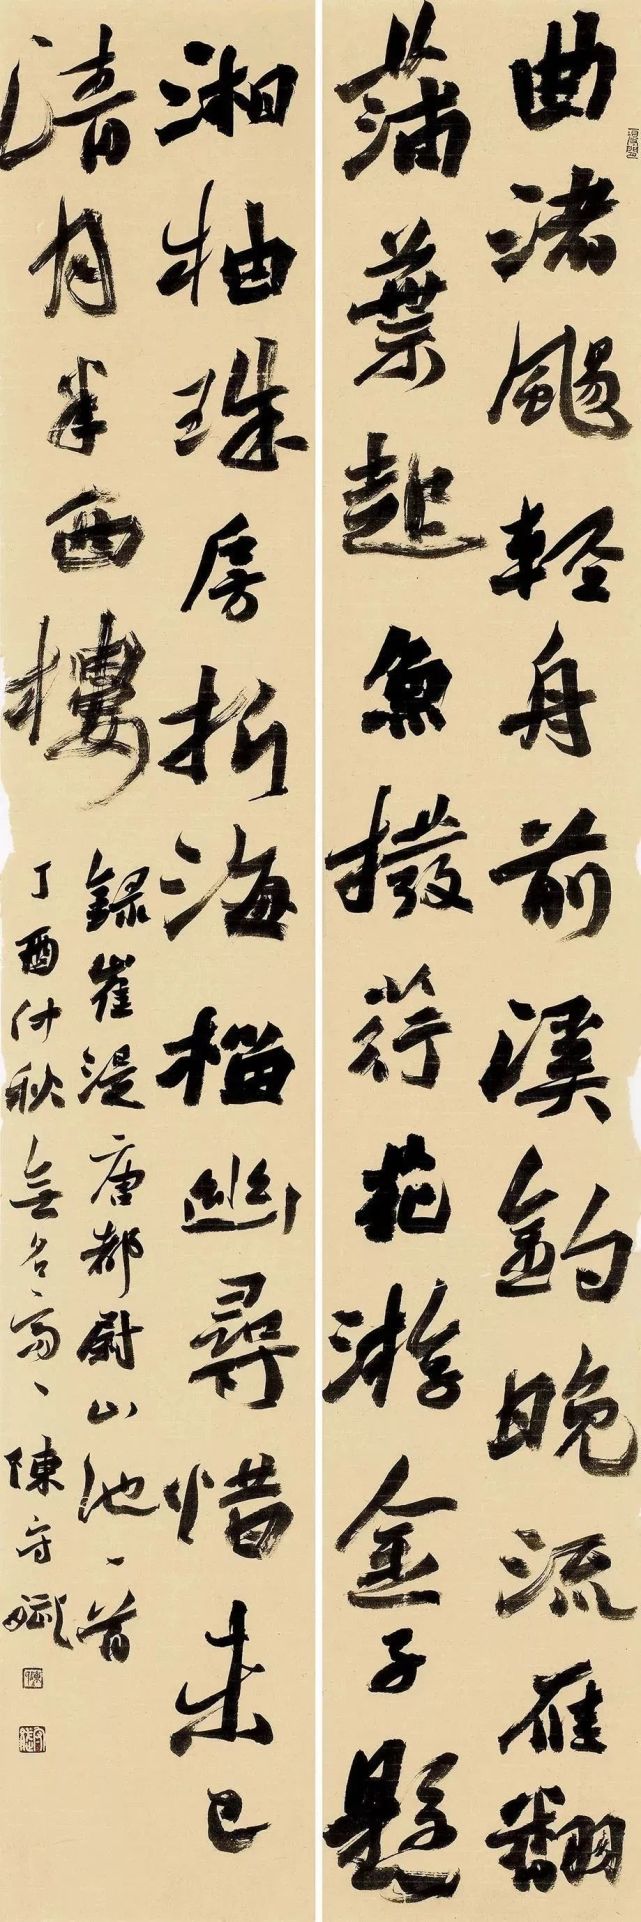 曲渚颺輕舟前溪釣晚流雁翻
蒲葉起魚撥荇花游金子懸
湘柚珠房折海榴幽尋惜未已
清月半西樓
錄崔湜唐都尉山池一首
丁酉仲秋無名陳守